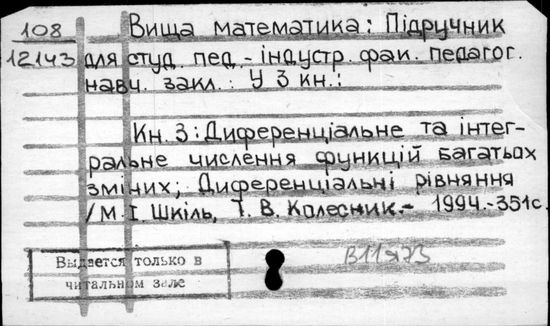 108 Вища математика: Підручник
12143 для студ. пед.-індустр. фак. педагог.
навч. закл. У 3 кн.:
Кн. 3: Диференціальне та інтег-
ральне числення функцій багатьох
змінних; Диференціальні рівняння
/М.І. Шкіль, Т. В. Колесник.- 1994.-351с.
В11я73
Выдается только в
читальном зале